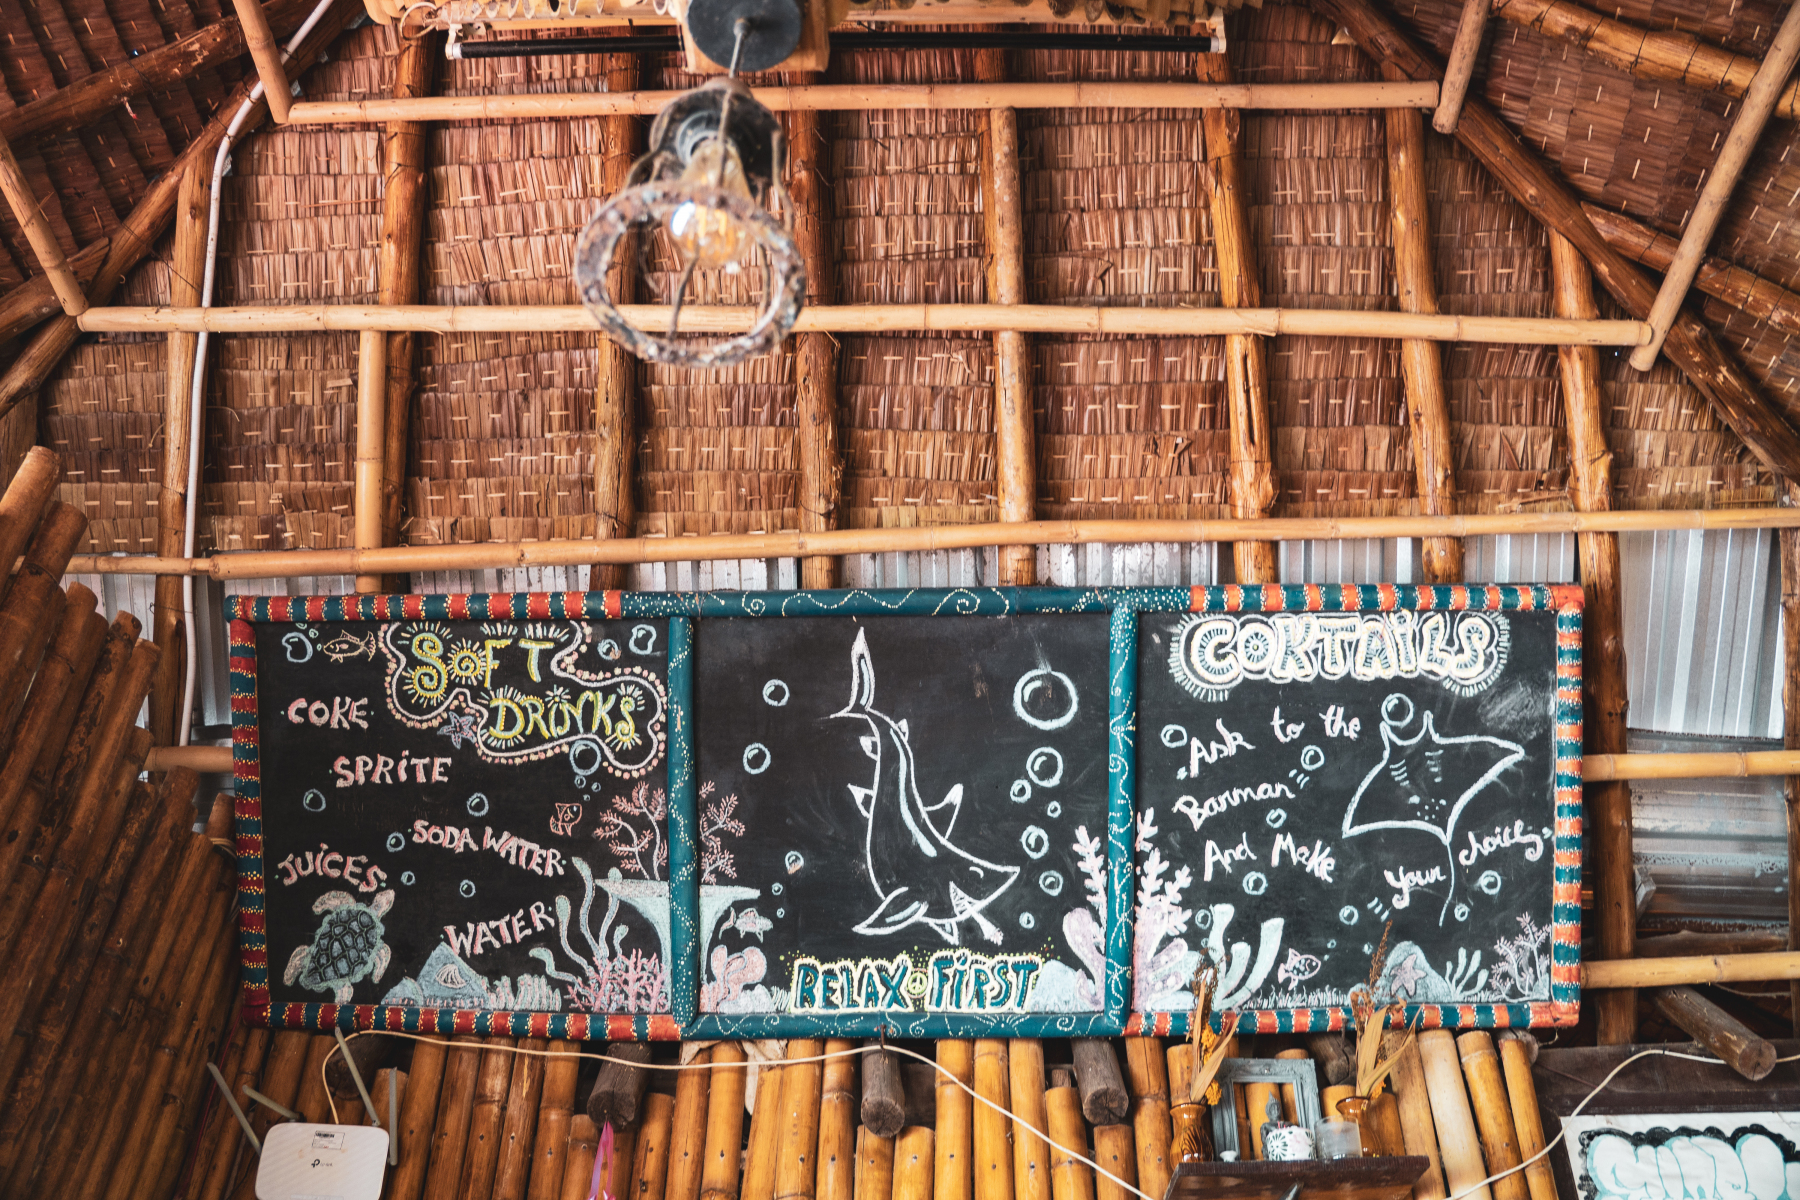 SOFT
DRINKS
COKE
SPRITE
SODA WATER
JUICES
WATER
RELAX FIRST
COKTAILS
Ask to the
Barman
And Make
your choices
tp-link